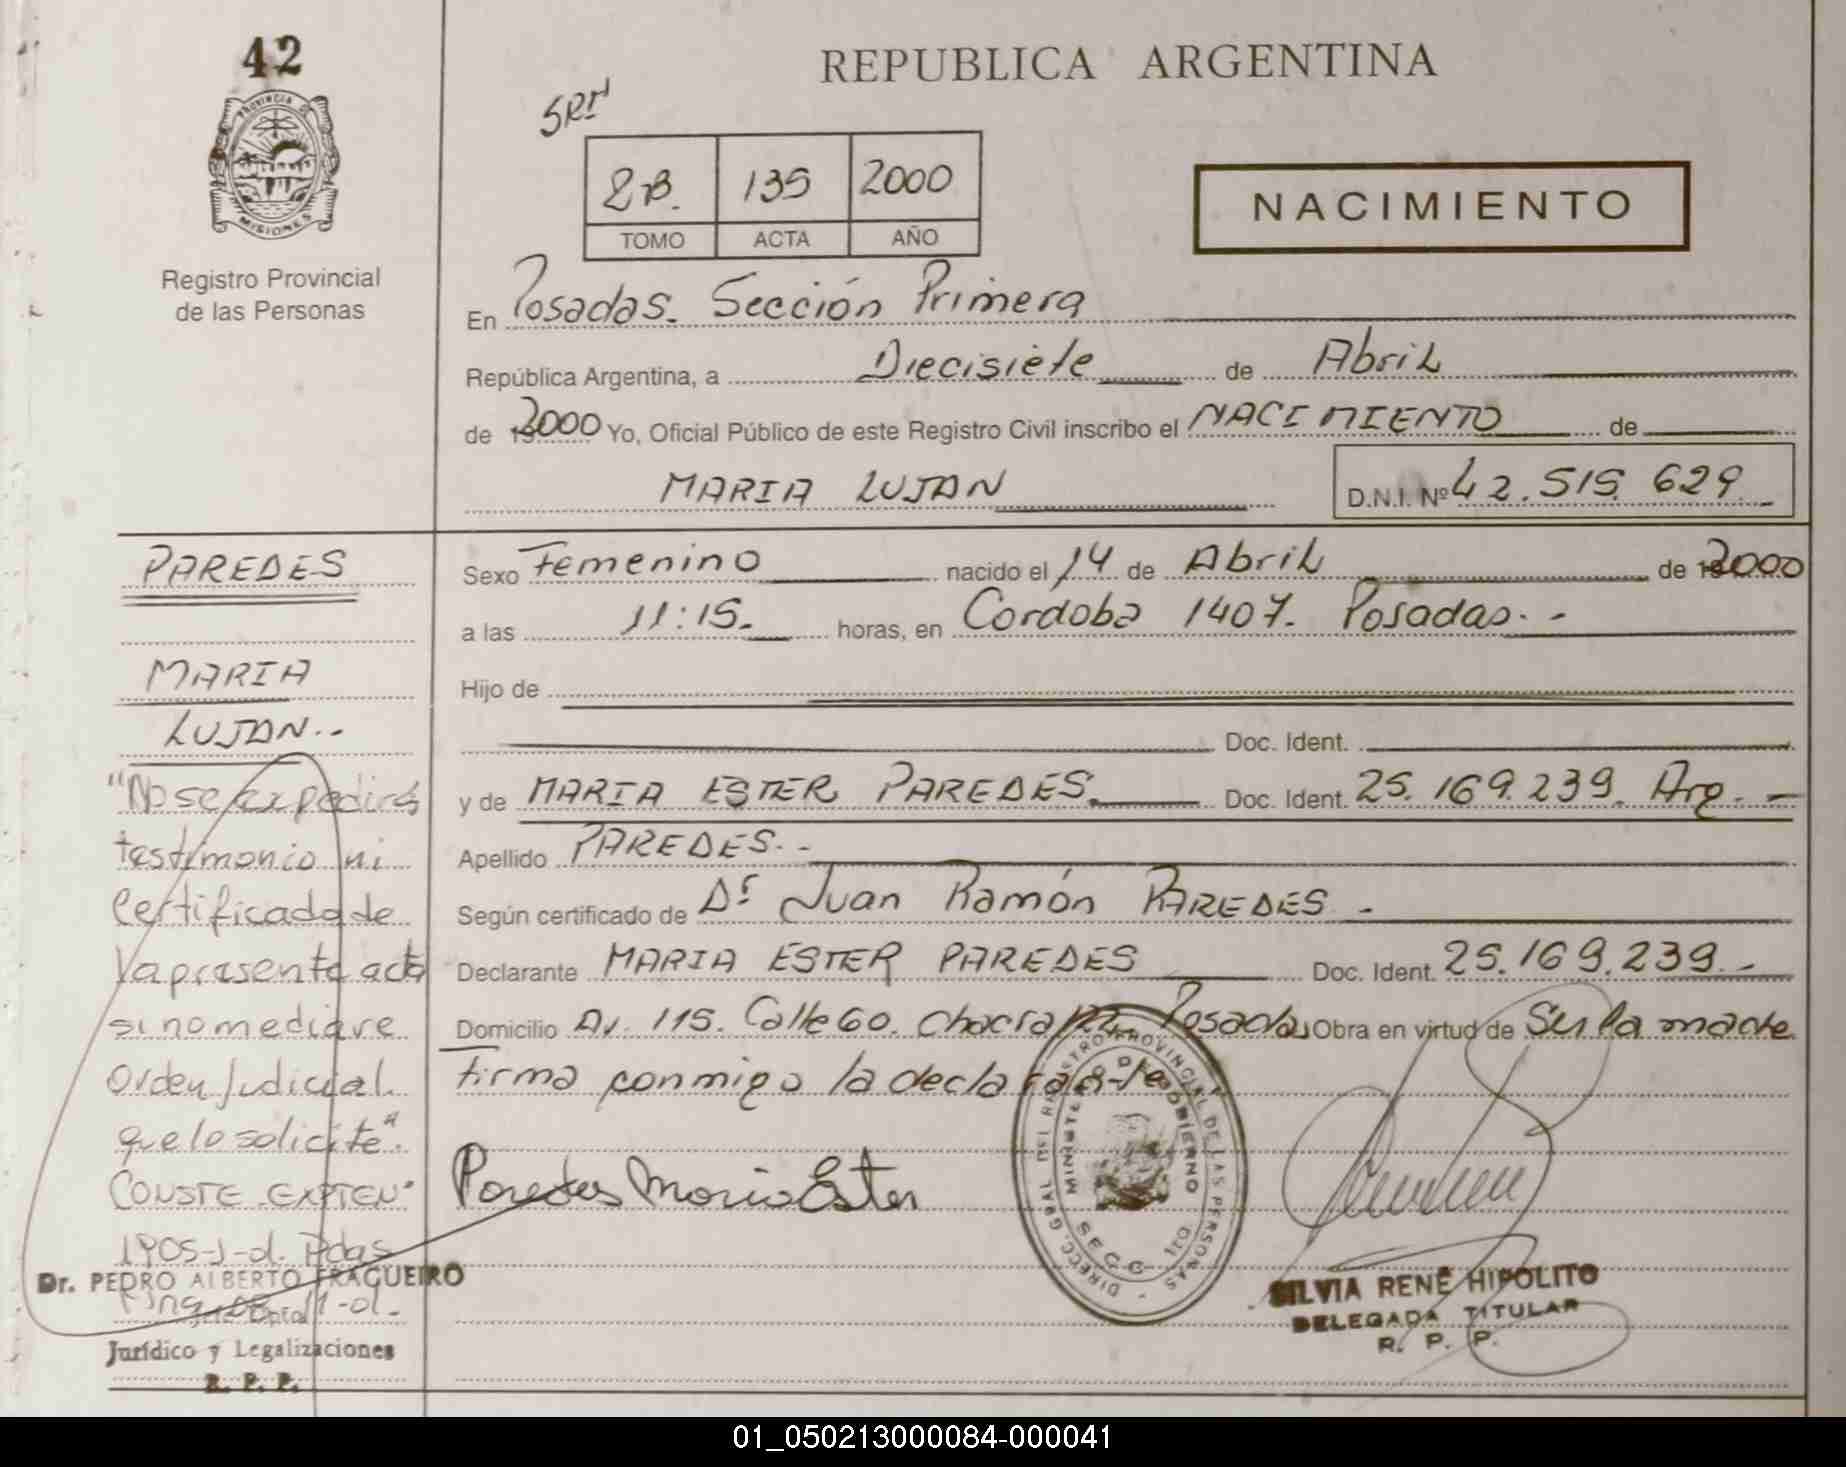 42
PROVINCIA DE
MISIONES
Registro Provincial
de las Personas
REPUBLICA ARGENTINA
2B. 135 2000
TOMO ACTA AÑO
NACIMIENTO
En Posadas. Sección Primera
República Argentina, a Diecisiete de Abril
de 2000 Yo, Oficial Público de este Registro Civil inscribo el NACIMIENTO de
MARIA LUJAN D.N.I. Nº 42.515.629
PAREDES
MARIA
LUJAN..
"No se expedirá
testimonio ni
Certificado de
la presente acta
si no mediare
Orden Judicial
que lo solicite".
CONSTE EXPTE Nº
1905-J-01. Pdas
11-01.
Dr. PEDRO ALBERTO FRAGUEIRO
Dpto.
Jurídico y Legalizaciones
R. P. P.
Sexo Femenino nacido el 14 de Abril de 2000
a las 11:15. horas, en Cordoba 1407. Posadas. -
Hijo de
Doc. Ident.
y de MARIA ESTER PAREDES. Doc. Ident. 25.169.239. Arg. -
Apellido PAREDES. -
Según certificado de Dr Juan Ramón PAREDES -
Declarante MARIA ESTER PAREDES Doc. Ident. 25.169.239. -
Domicilio Av. 115. Calle 60. Chacra Posadas Obra en virtud de Ser la madre
Firma conmigo la declarante
Paredes Maria Ester
DIRECC. GRAL DEL REGISTRO PROVINCIAL DE LAS PERSONAS
MINISTERIO DE GOBIERNO
SECC. 1RO
SILVIA RENÉ HIPOLITO
DELEGADA TITULAR
R. P. P.
01_050213000084-000041